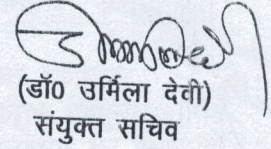 (डॉ0 उर्मिला देवी)
संयुक्त सचिव